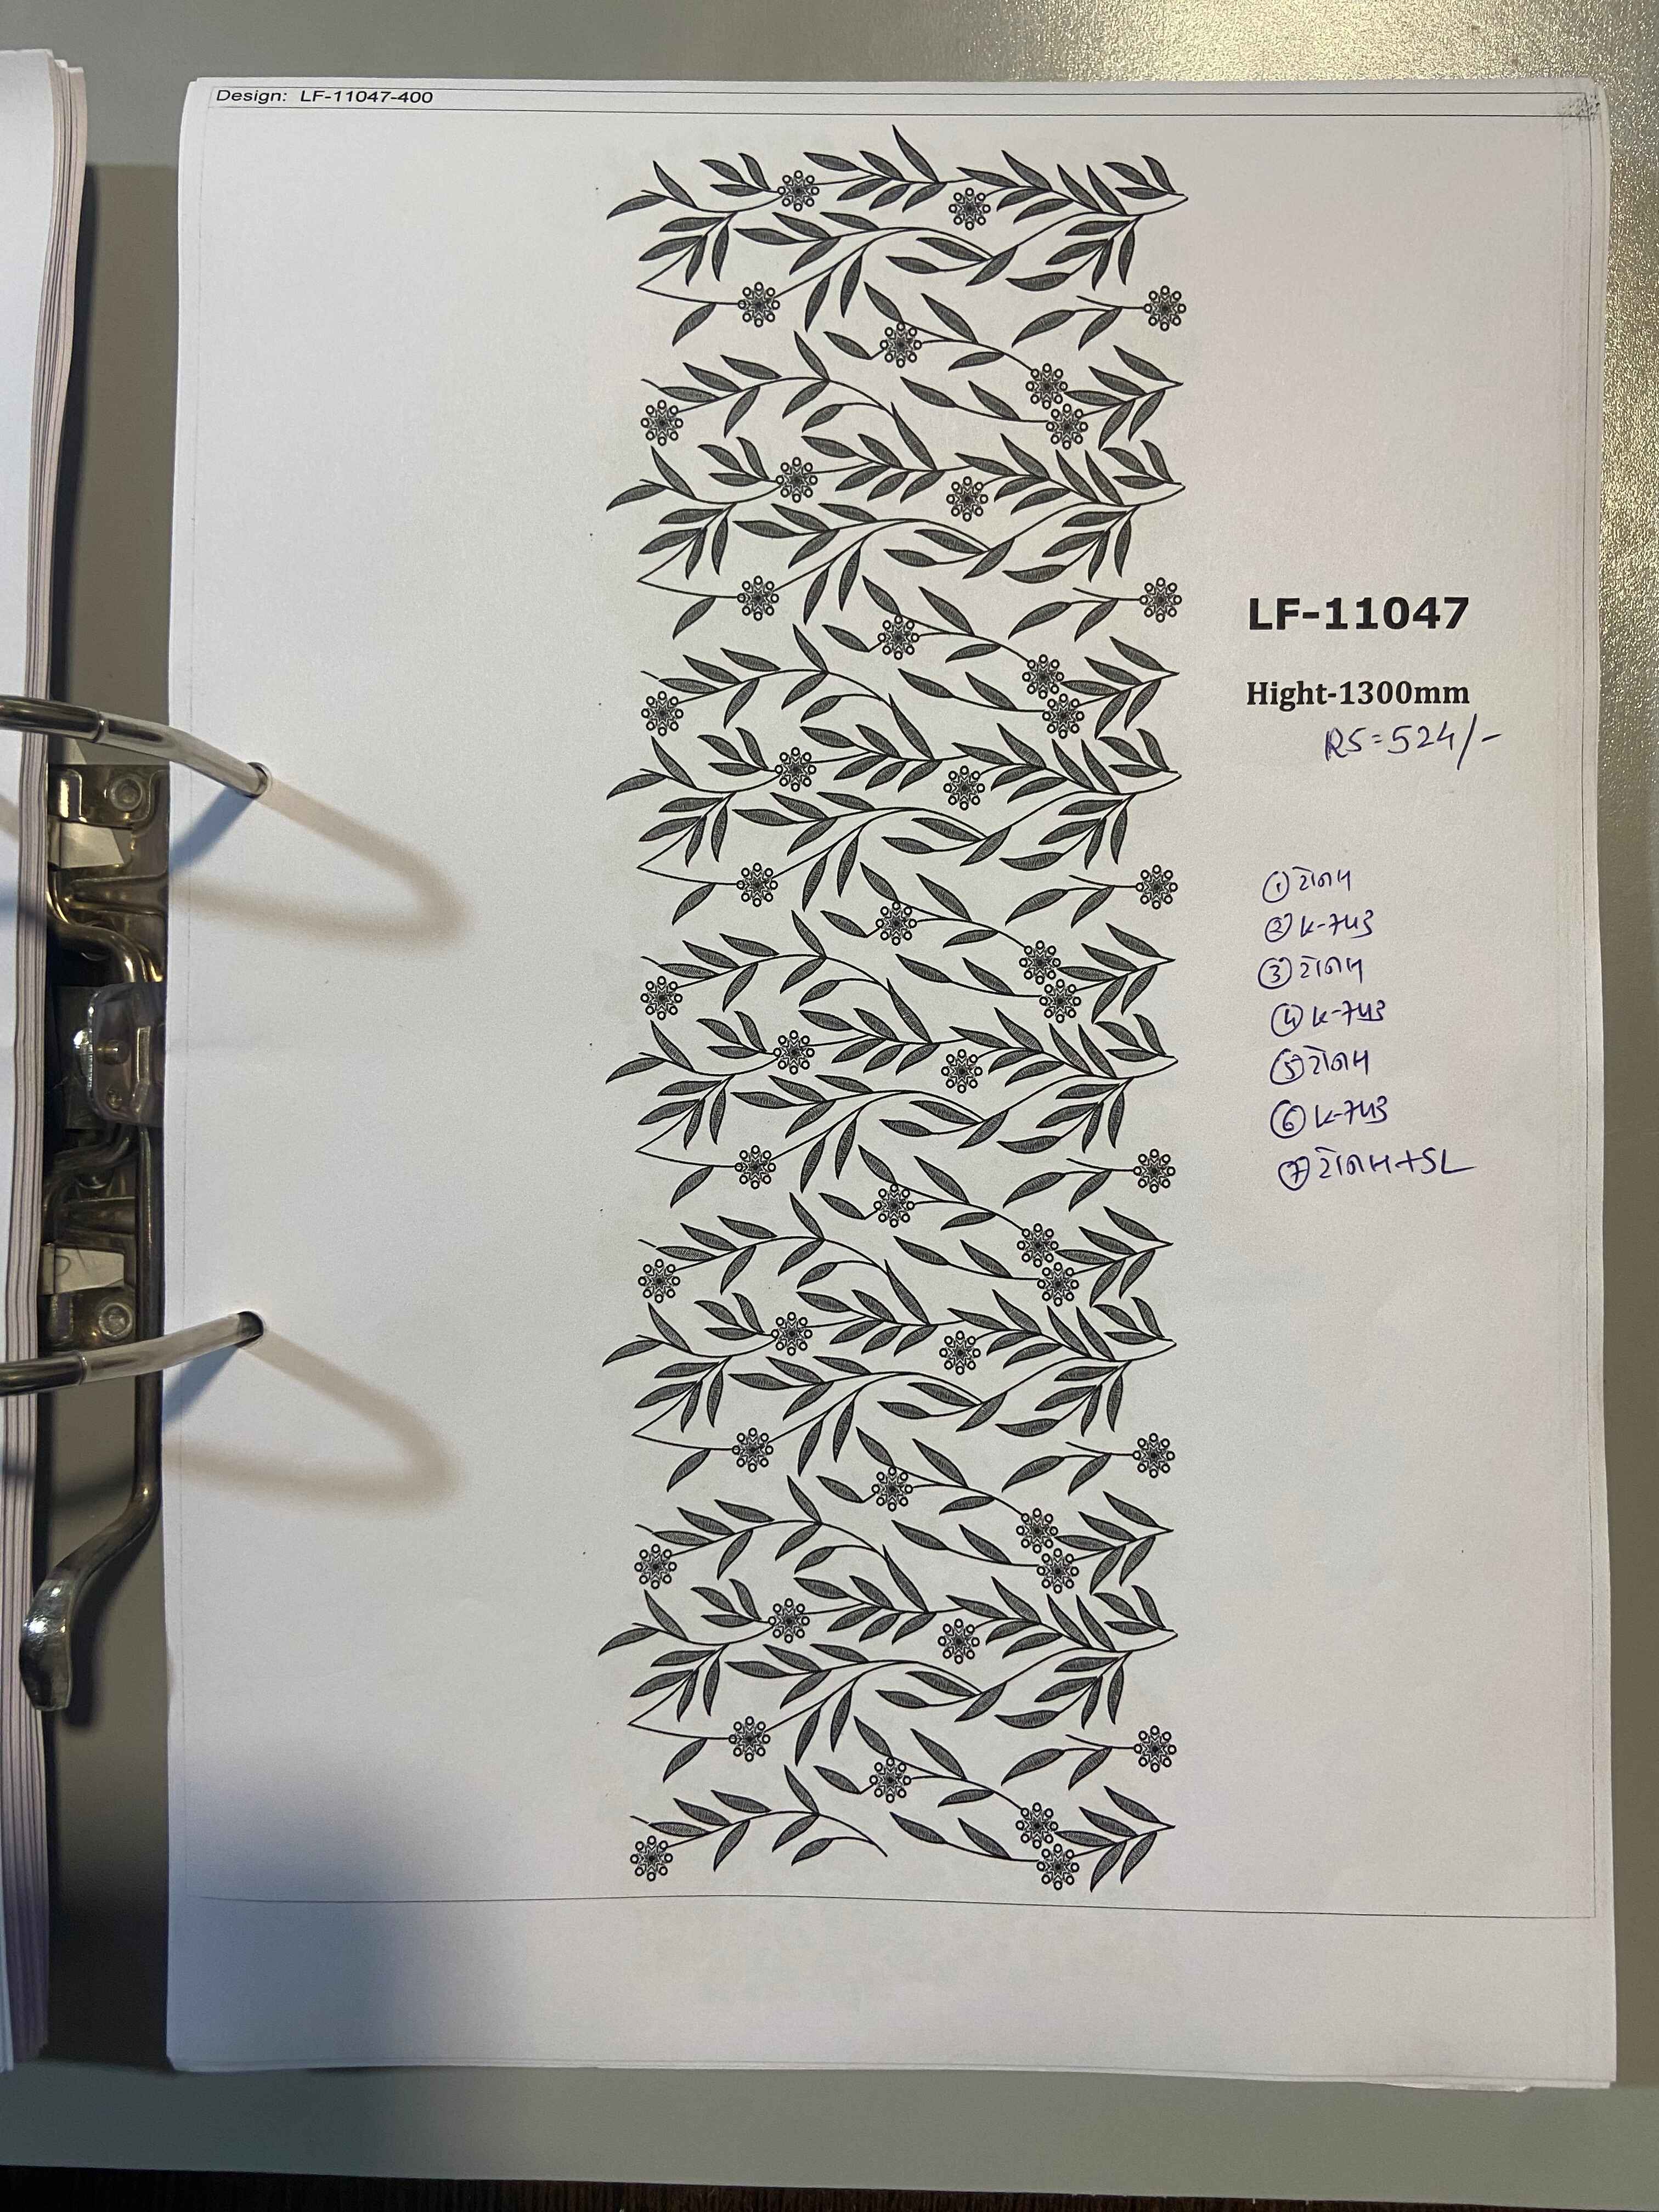 Design: LF-11047-400
LF-11047
Hight-1300mm
RS=524/-
① રોલમ
② K-743
③ રોલમ
④ K-743
⑤ રોલમ
⑥ K-743
⑦ +SL